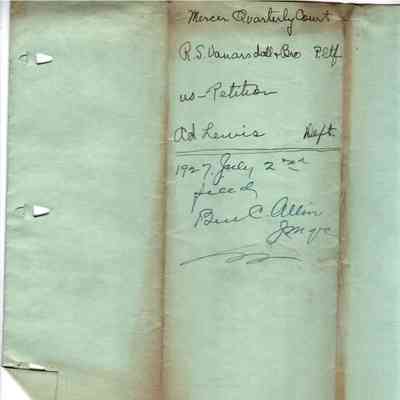 Mercer Quarterly Court
R.S. Vanarsdall + Bro Pltf
vs - Petition
Ad Lewis Deft.
1927, July 2nd
filed
Ben C. Allin
JMQC